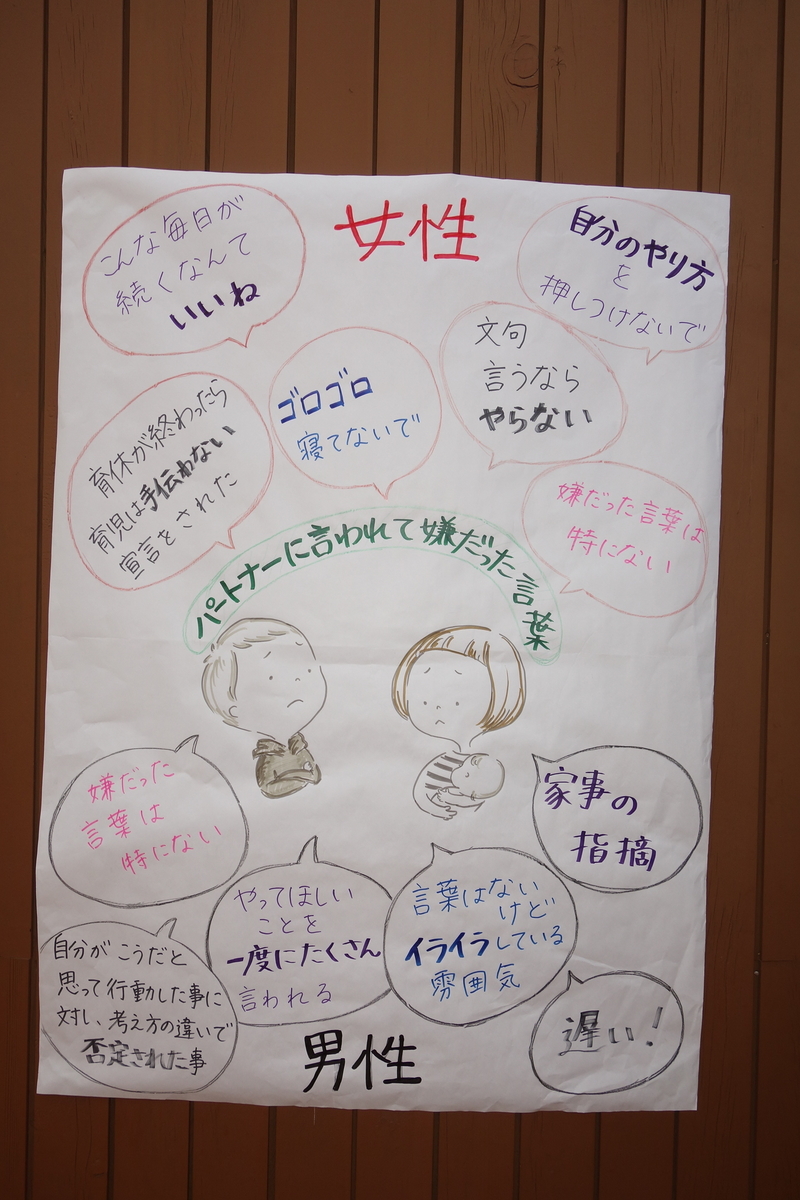 女性
こんな毎日が
続くなんて
いいね
自分のやり方
を
押しつけないで
文句
言うなら
やらない
ゴロゴロ
寝てないで
育休が終わったら
育児は手伝わない
宣言をされた
嫌だった言葉は
特にない
パートナーに言われて嫌だった言葉
嫌だった
言葉は
特にない
家事の
指摘
やってほしい
ことを
一度にたくさん
言われる
言葉はない
けど
イライラしている
雰囲気
自分がこうだと
思って行動した事に
対し、考え方の違いで
否定された事
遅い!
男性